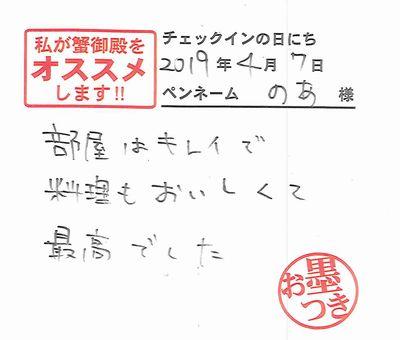 私が蟹御殿を
オススメ
します!!
チェックインの日にち
2019年4月7日
ペンネーム のあ 様
部屋はキレイで
料理もおいしくて
最高でした
お墨つき